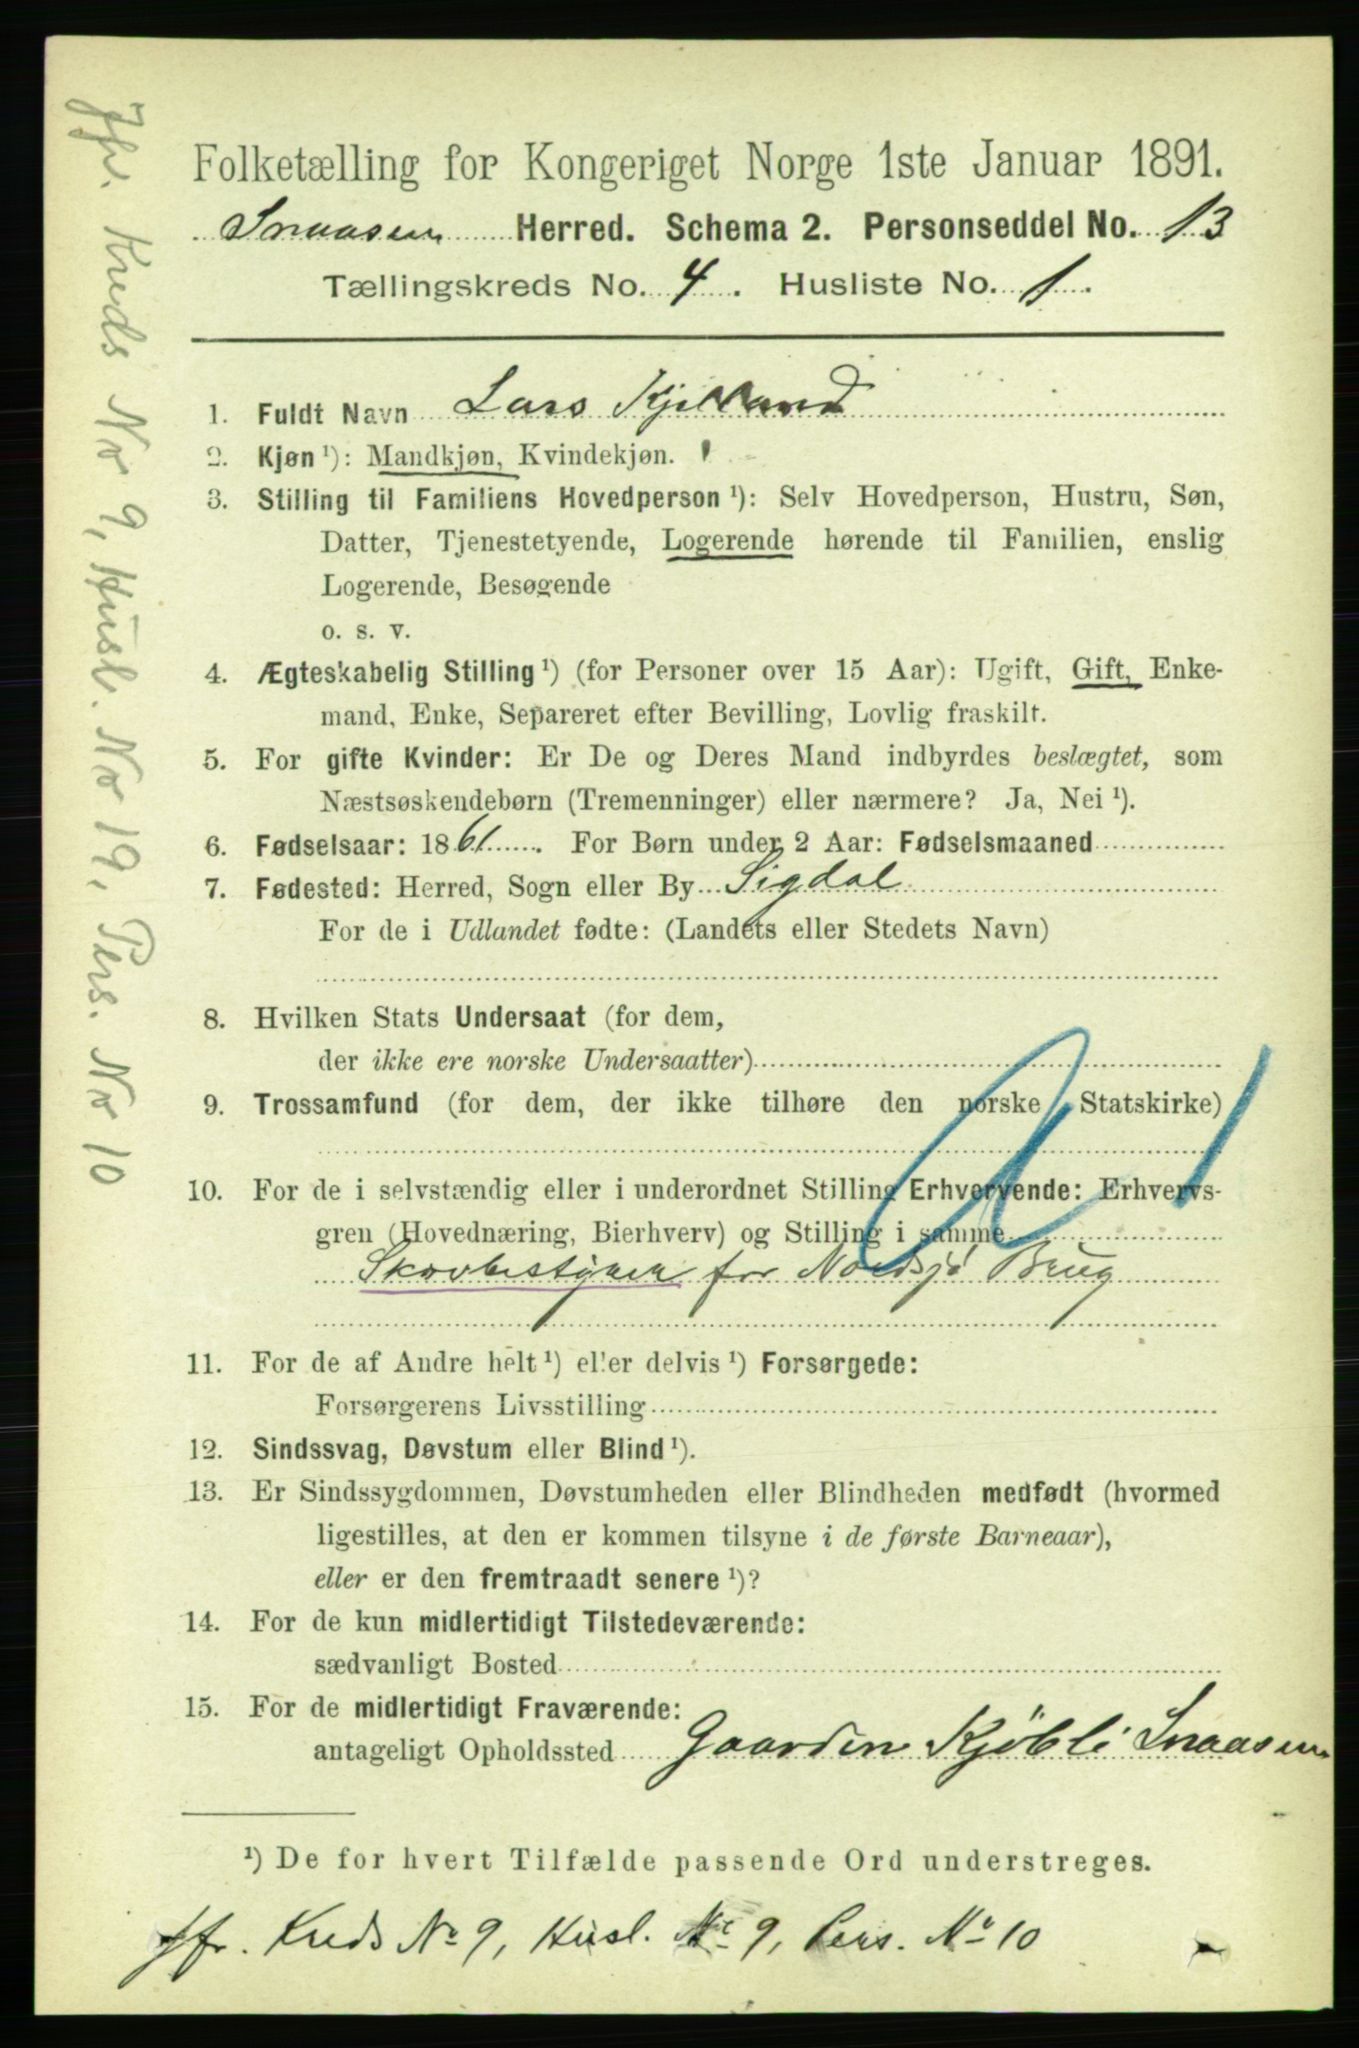 Folketælling for Kongeriget Norge 1ste Januar 1891.
Snaasen Herred. Schema 2. Personseddel No. 13
Tællingskreds No. 4. Husliste No. 1.
1. Fuldt Navn Lars Kjelland
2. Kjøn ¹): Mandkjøn, Kvindekjøn.
3. Stilling til Familiens Hovedperson ¹): Selv Hovedperson, Hustru, Søn,
Datter, Tjenestetyende, Logerende hørende til Familien, enslig
Logerende, Besøgende
o. s. v.
4. Ægteskabelig Stilling ¹) (for Personer over 15 Aar): Ugift, Gift, Enke-
mand, Enke, Separeret efter Bevilling, Lovlig fraskilt.
5. For gifte Kvinder: Er De og Deres Mand indbyrdes beslægtet, som
Næstsøskendebørn (Tremenninger) eller nærmere? Ja, Nei ¹).
6. Fødselsaar: 1861. For Børn under 2 Aar: Fødselsmaaned
7. Fødested: Herred, Sogn eller By Sigdal
For de i Udlandet fødte: (Landets eller Stedets Navn)
8. Hvilken Stats Undersaat (for dem,
der ikke ere norske Undersaatter)
9. Trossamfund (for dem, der ikke tilhøre den norske Statskirke)
10. For de i selvstændig eller i underordnet Stilling Erhvervende: Erhvervs-
gren (Hovednæring, Bierhverv) og Stilling i samme
Skovbestyrer for Nordsjö Brug
11. For de af Andre helt ¹) eller delvis ¹) Forsørgede:
Forsørgerens Livsstilling
12. Sindssvag, Døvstum eller Blind ¹).
13. Er Sindssygdommen, Døvstumheden eller Blindheden medfødt (hvormed
ligestilles, at den er kommen tilsyne i de første Barneaar),
eller er den fremtraadt senere ¹)?
14. For de kun midlertidigt Tilstedeværende:
sædvanligt Bosted
15. For de midlertidigt Fraværende:
antageligt Opholdssted Gaarden Kjöbli Snaasen
¹) De for hvert Tilfælde passende Ord understreges.
Jfr. Kreds No 9, Husl. No 9, Pers. No 10
Jfr. Kreds No 9, Husl. No 19, Pers. No 10